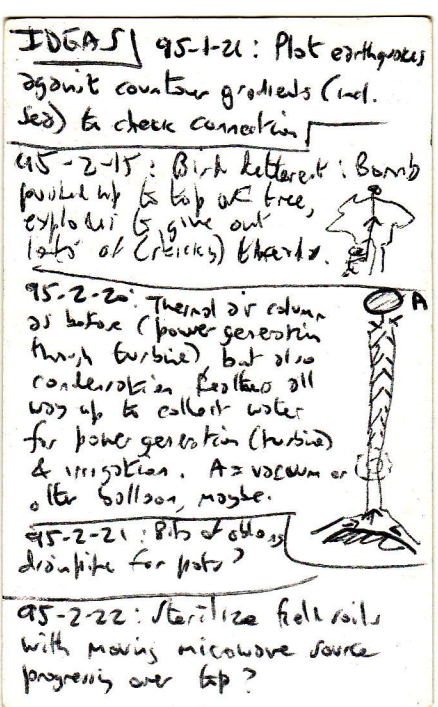 IDEAS 95-1-21: Plot earthquakes
against countour gradients (incl.
sea) to check connection
95-2-15: Bird deterrent: Bomb
pushed up to top of tree,
explodes to give out
lots of (sticky) threads.
95-2-20: Thermal air column
as before (power generation
through turbine) but also
condensation feathers all
way up to collect water
for power generation (turbine)
& irrigation. A = vacuum or
other balloon, maybe.
A
95-2-21: Bits of oblong
drainpipe for pots?
95-2-22: Sterilize field soils
with moving microwave source
progressing over top?